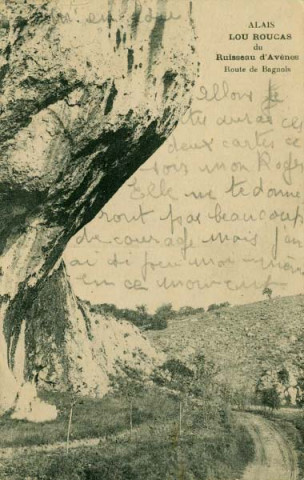 ALAIS
LOU ROUCAS
du
Ruisseau d'Avène
Route de Bagnols
Allons je
deux cartes ce
soir mon Roger
Elle ne te donne
ront pas beaucoup
de courage mais j'en
ai si peu moi même
en ce moment